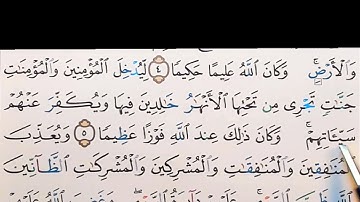 وَٱلْأَرْضِۚ وَكَانَ ٱللَّهُ عَلِيمًا حَكِيمًا ٤ لِّيُدْخِلَ ٱلْمُؤْمِنِينَ وَٱلْمُؤْمِنَٰتِ
جَنَّٰتٍ تَجْرِى مِن تَحْتِهَا ٱلْأَنْهَٰرُ خَٰلِدِينَ فِيهَا وَيُكَفِّرَ عَنْهُمْ
سَيِّـَٔاتِهِمْۚ وَكَانَ ذَٰلِكَ عِندَ ٱللَّهِ فَوْزًا عَظِيمًا ٥ وَيُعَذِّبَ
ٱلْمُنَٰفِقِينَ وَٱلْمُنَٰفِقَٰتِ وَٱلْمُشْرِكِينَ وَٱلْمُشْرِكَٰتِ ٱلظَّآنِّينَ